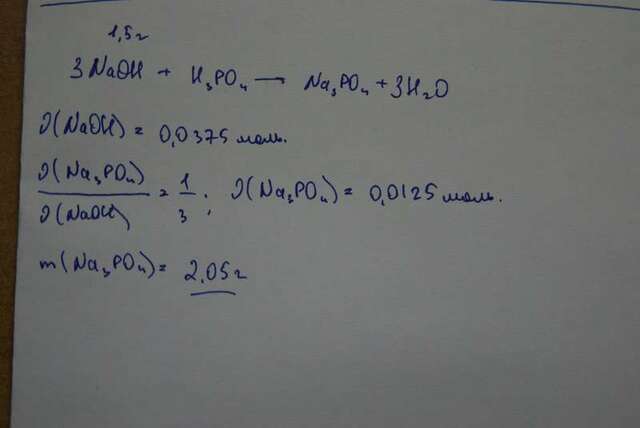 1,5г
3NaOH + H₃PO₄ → Na₃PO₄ + 3H₂O
ν(NaOH) = 0,0375 моль.
ν(Na₃PO₄)
ν(NaOH)
= 1/3; ν(Na₃PO₄) = 0,0125 моль.
m(Na₃PO₄) = 2,05г